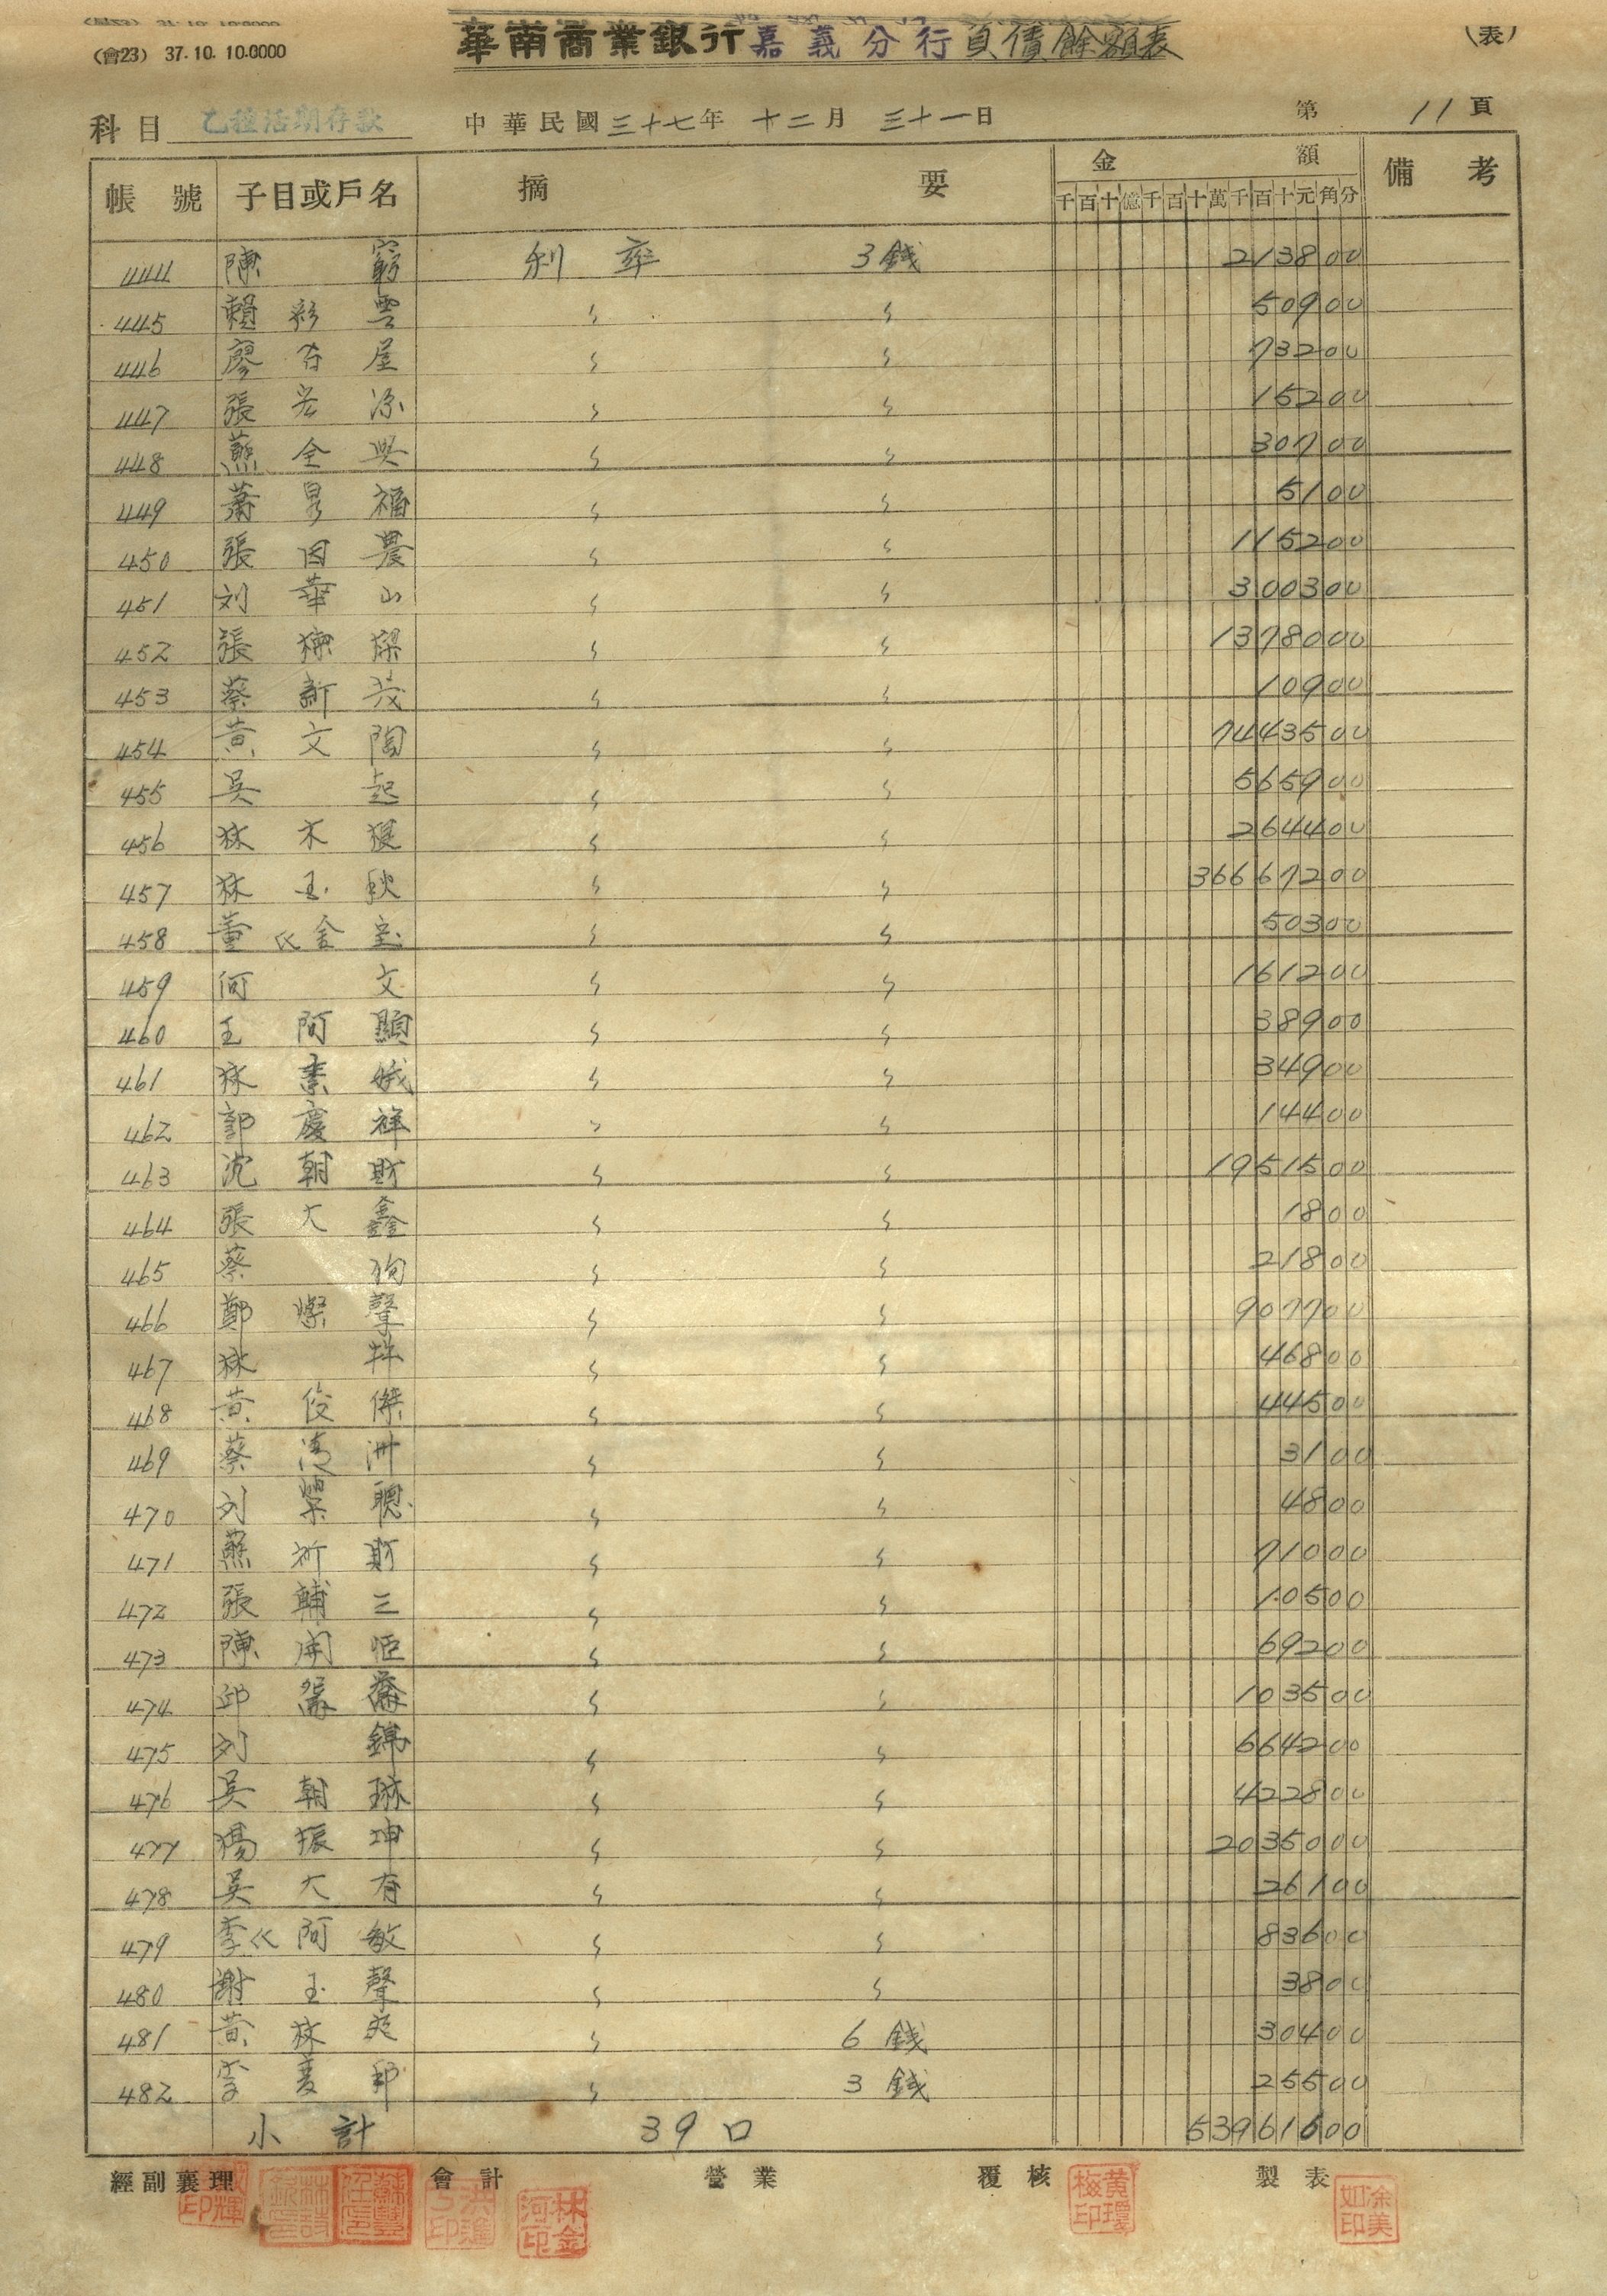 (會23) 37.10.10.0000
華南商業銀行嘉義分行負債餘額表
(表)
科目 乙種活期存款 中華民國三十七年 十二月 三十一日 第 11 頁
帳號 子目或戶名 摘要 金額 備考
千百十億千百十萬千百十元角分
444 陳 窮 利率 3錢 213800
445 賴彩雲 〃 〃 50900
446 廖 屋 〃 〃 73200
447 張 源 〃 〃 15200
448 蘇全興 〃 〃 30700
449 蕭 福 〃 〃 5100
450 張因農 〃 〃 115200
451 刘華山 〃 〃 300300
452 張 〃 〃 1378000
453 蔡新茂 〃 〃 10900
454 黃文陶 〃 〃 7443500
455 吳 起 〃 〃 565900
456 林木 〃 〃 264400
457 林玉秋 〃 〃 36667200
458 董氏金宝 〃 〃 50300
459 何 文 〃 〃 161200
460 王阿顯 〃 〃 38900
461 林素娥 〃 〃 34900
462 郭慶祥 〃 〃 14400
463 沈朝財 〃 〃 1951500
464 張大鑫 〃 〃 1800
465 蔡 〃 〃 21800
466 鄭燦聲 〃 〃 907700
467 林 〃 〃 46800
468 黃俊傑 〃 〃 44500
469 蔡清洲 〃 〃 3100
470 刘榮聰 〃 〃 4800
471 蘇祈財 〃 〃 71000
472 張輔三 〃 〃 10500
473 陳開恒 〃 〃 69200
474 邱 〃 〃 103500
475 刘 錦 〃 〃 664200
476 吳朝琳 〃 〃 422800
477 楊振坤 〃 〃 2035000
478 吳大有 〃 〃 26100
479 李氏阿敏 〃 〃 83600
480 謝玉聲 〃 〃 3800
481 黃林爽 〃 6錢 30400
482 李 〃 3錢 25500
小計 39口 53961600
經副襄理 會計 營業 覆核 製表
林金河印
黃環梅印
涂美如印